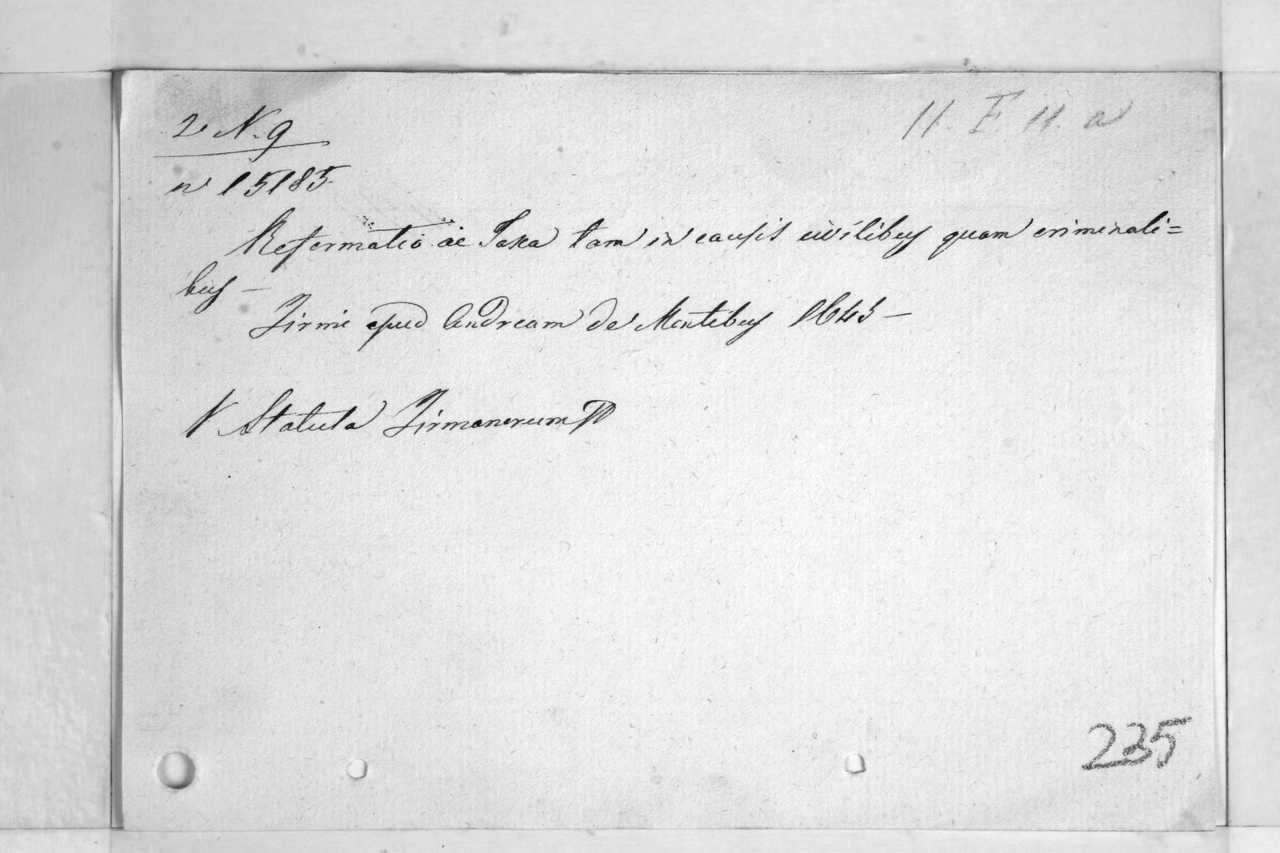 2 N. 9
11. F. 11. a
n 15185
Reformatio ac Taxa tam in causis civilibus quam criminali=
bus —
Firmi apud Andream de Montibus 1645 —
V Statuta Firmanorum
235